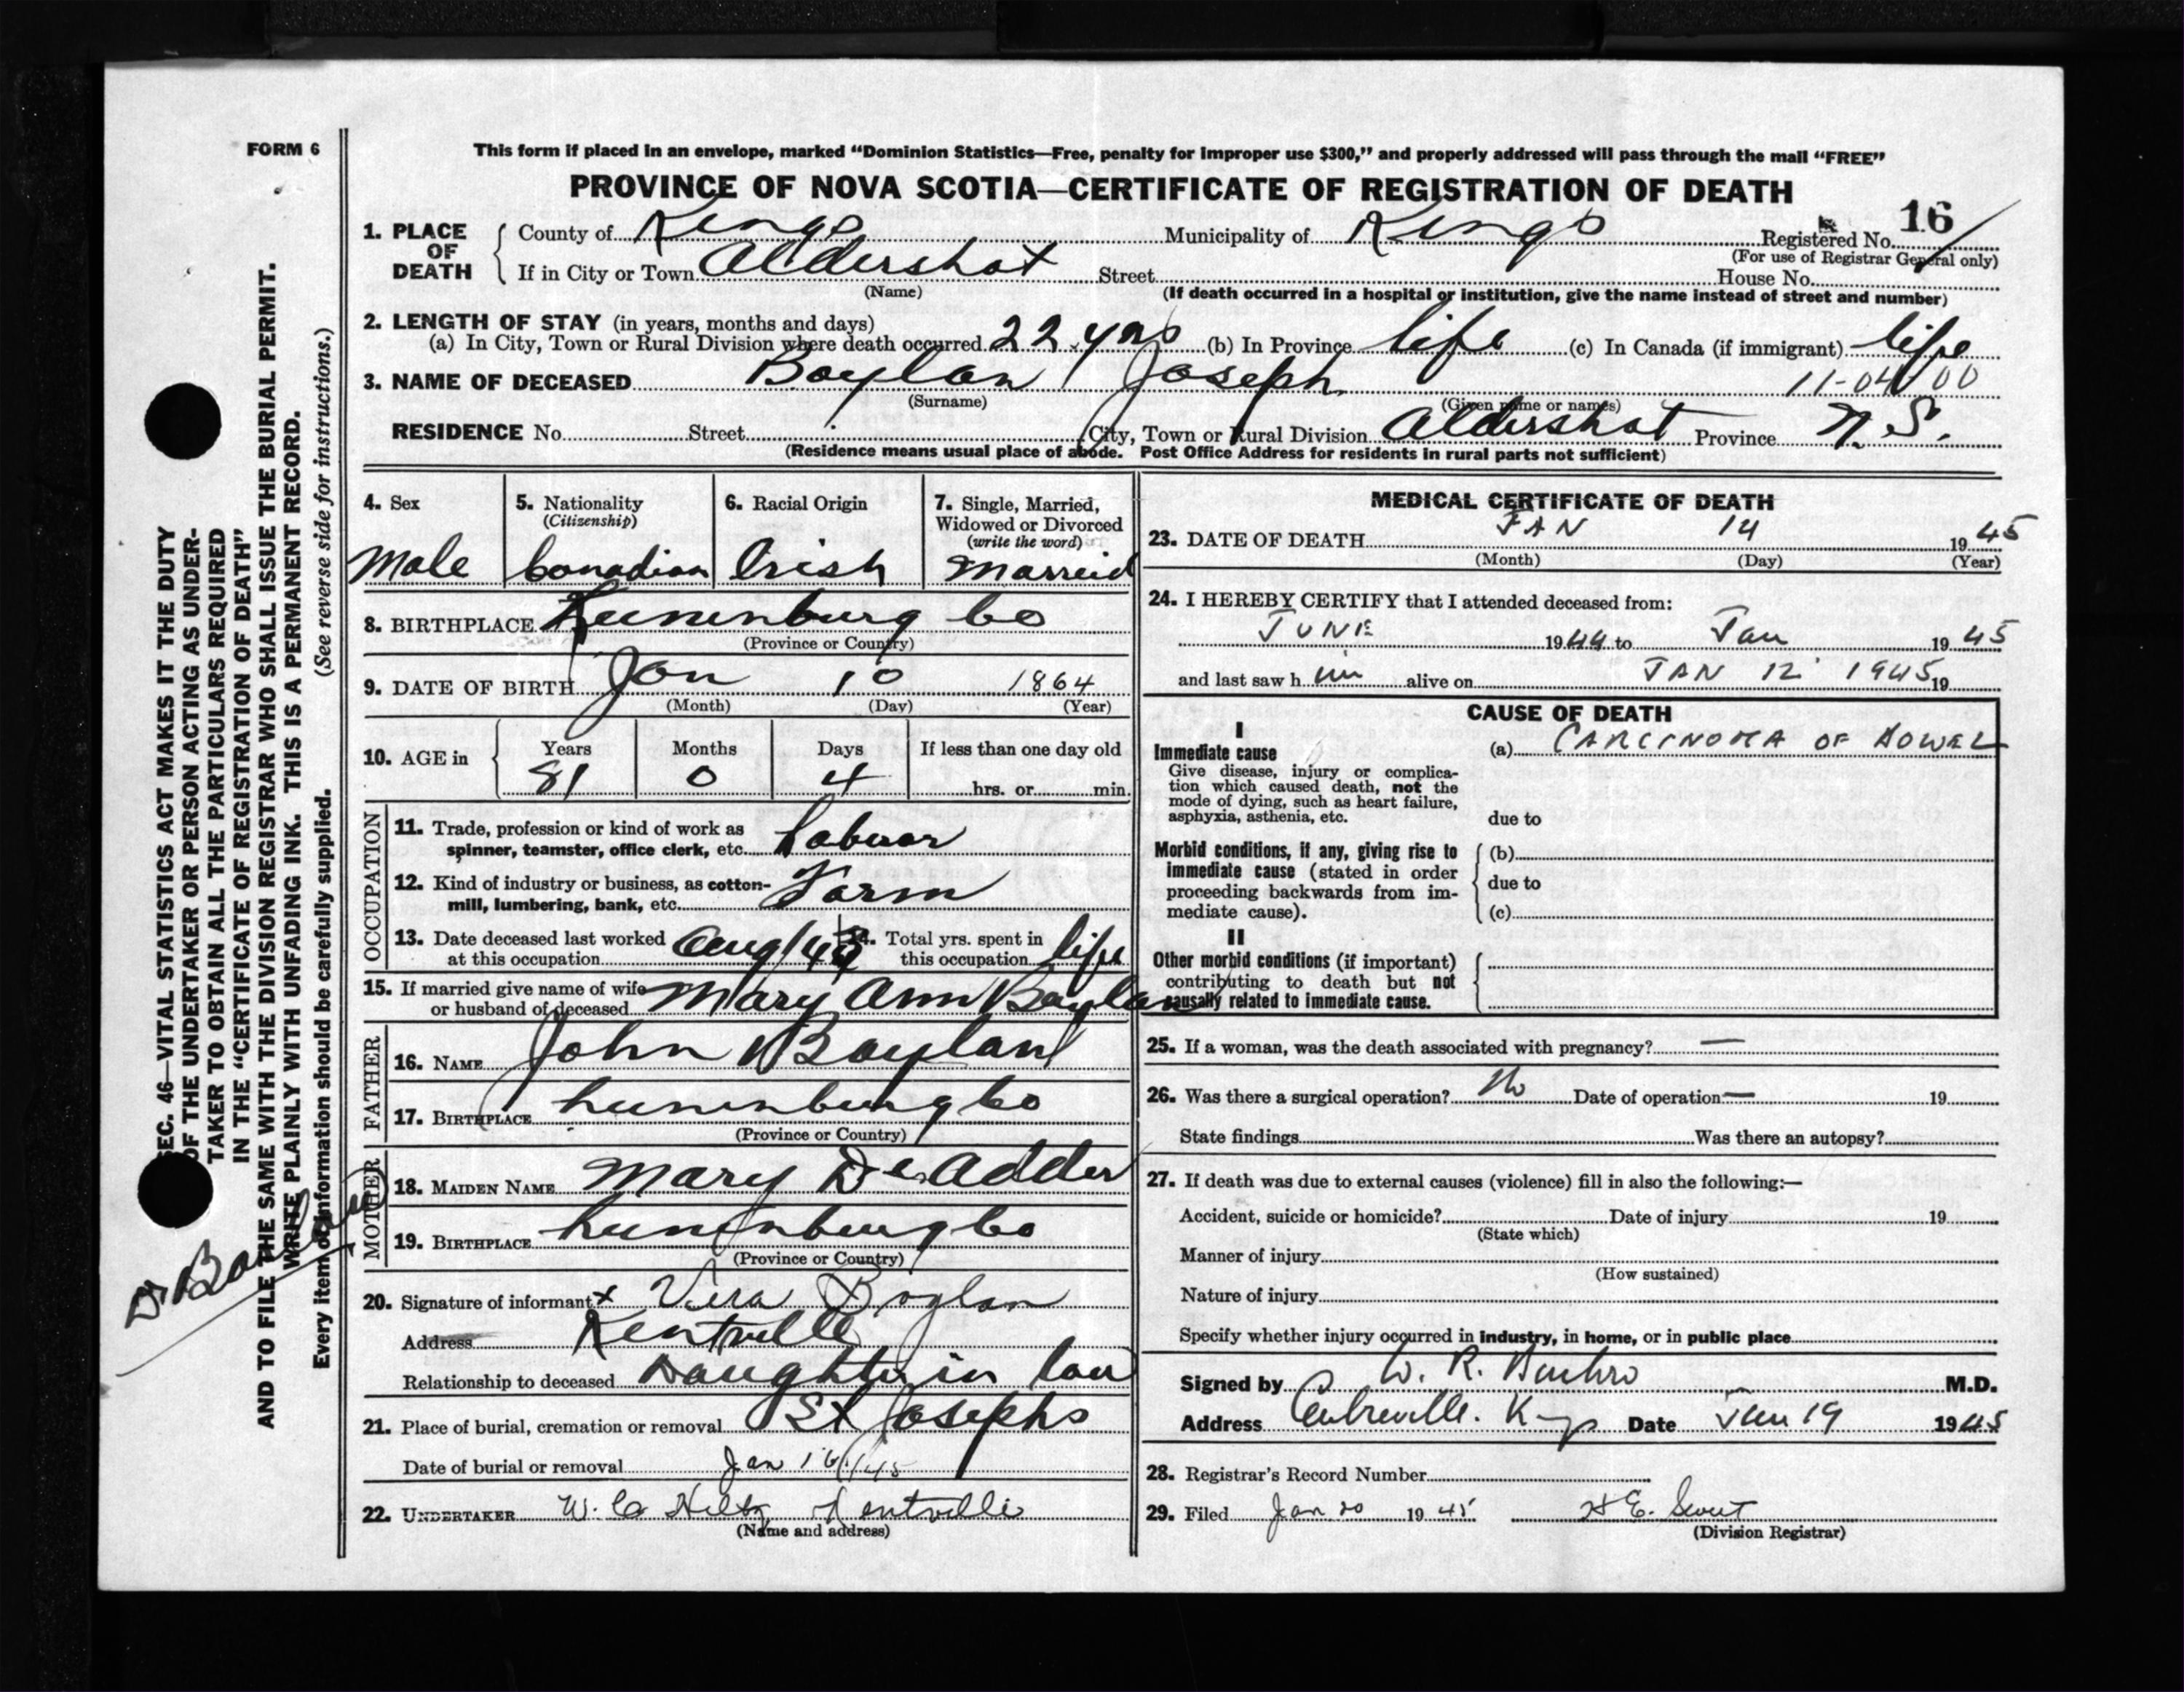 FORM 6
This form if placed in an envelope, marked "Dominion Statistics—Free, penalty for improper use $300," and properly addressed will pass through the mail "FREE"
PROVINCE OF NOVA SCOTIA—CERTIFICATE OF REGISTRATION OF DEATH
1. PLACE OF DEATH
County of Kings Municipality of Kings Registered No. 16
(For use of Registrar General only)
If in City or Town Aldershot Street House No.
(Name) (If death occurred in a hospital or institution, give the name instead of street and number)
2. LENGTH OF STAY (in years, months and days)
(a) In City, Town or Rural Division where death occurred 22 yrs (b) In Province life (c) In Canada (if immigrant) life
3. NAME OF DECEASED Boylan Joseph 11-04 00
(Surname) (Given name or names)
RESIDENCE No. Street City, Town or Rural Division Aldershot Province N.S.
(Residence means usual place of abode. Post Office Address for residents in rural parts not sufficient)
4. Sex
Male
5. Nationality
(Citizenship)
Canadian
6. Racial Origin
Irish
7. Single, Married,
Widowed or Divorced
(write the word)
Marreid
8. BIRTHPLACE Lunenburg Co
(Province or Country)
9. DATE OF BIRTH Jan 10 1864
(Month) (Day) (Year)
10. AGE in Years Months Days If less than one day old
81 0 4 hrs. or min.
OCCUPATION
11. Trade, profession or kind of work as
spinner, teamster, office clerk, etc. Labuar
12. Kind of industry or business, as cotton-
mill, lumbering, bank, etc. Farm
13. Date deceased last worked
at this occupation Aug/43
14. Total yrs. spent in
this occupation life
15. If married give name of wife
or husband of deceased Mary Ann Boylan
FATHER
16. NAME John Boylan
17. BIRTHPLACE Lunenburg Co
(Province or Country)
MOTHER
18. MAIDEN NAME Mary DeAdder
19. BIRTHPLACE Lunenburg Co
(Province or Country)
20. Signature of informant x Vera Boylan
Address Kentville
Relationship to deceased Daughter in law
21. Place of burial, cremation or removal St Josephs
Date of burial or removal Jan 16/45
22. UNDERTAKER W. C. Hiltz Kentville
(Name and address)
MEDICAL CERTIFICATE OF DEATH
23. DATE OF DEATH JAN 14 1945
(Month) (Day) (Year)
24. I HEREBY CERTIFY that I attended deceased from:
JUNE 1944 to Jan 1945
and last saw h im alive on JAN 12 1945 19
CAUSE OF DEATH
I
Immediate cause (a) CARCINOMA OF BOWEL
Give disease, injury or complica-
tion which caused death, not the
mode of dying, such as heart failure,
asphyxia, asthenia, etc. due to
Morbid conditions, if any, giving rise to (b)
immediate cause (stated in order due to
proceeding backwards from im-
mediate cause). (c)
II
Other morbid conditions (if important)
contributing to death but not
causally related to immediate cause.
25. If a woman, was the death associated with pregnancy? —
26. Was there a surgical operation? No Date of operation — 19
State findings Was there an autopsy?
27. If death was due to external causes (violence) fill in also the following:—
Accident, suicide or homicide? Date of injury 19
(State which)
Manner of injury
(How sustained)
Nature of injury
Specify whether injury occurred in industry, in home, or in public place
Signed by W. R. M.D.
Address Centreville. Date Jan 19 1945
28. Registrar's Record Number
29. Filed Jan 20 1945 H E.
(Division Registrar)
SEC. 46—VITAL STATISTICS ACT MAKES IT THE DUTY
OF THE UNDERTAKER OR PERSON ACTING AS UNDER-
TAKER TO OBTAIN ALL THE PARTICULARS REQUIRED
IN THE "CERTIFICATE OF REGISTRATION OF DEATH"
AND TO FILE THE SAME WITH THE DIVISION REGISTRAR WHO SHALL ISSUE THE BURIAL PERMIT.
WRITE PLAINLY WITH UNFADING INK. THIS IS A PERMANENT RECORD.
Every item of information should be carefully supplied. (See reverse side for instructions.)